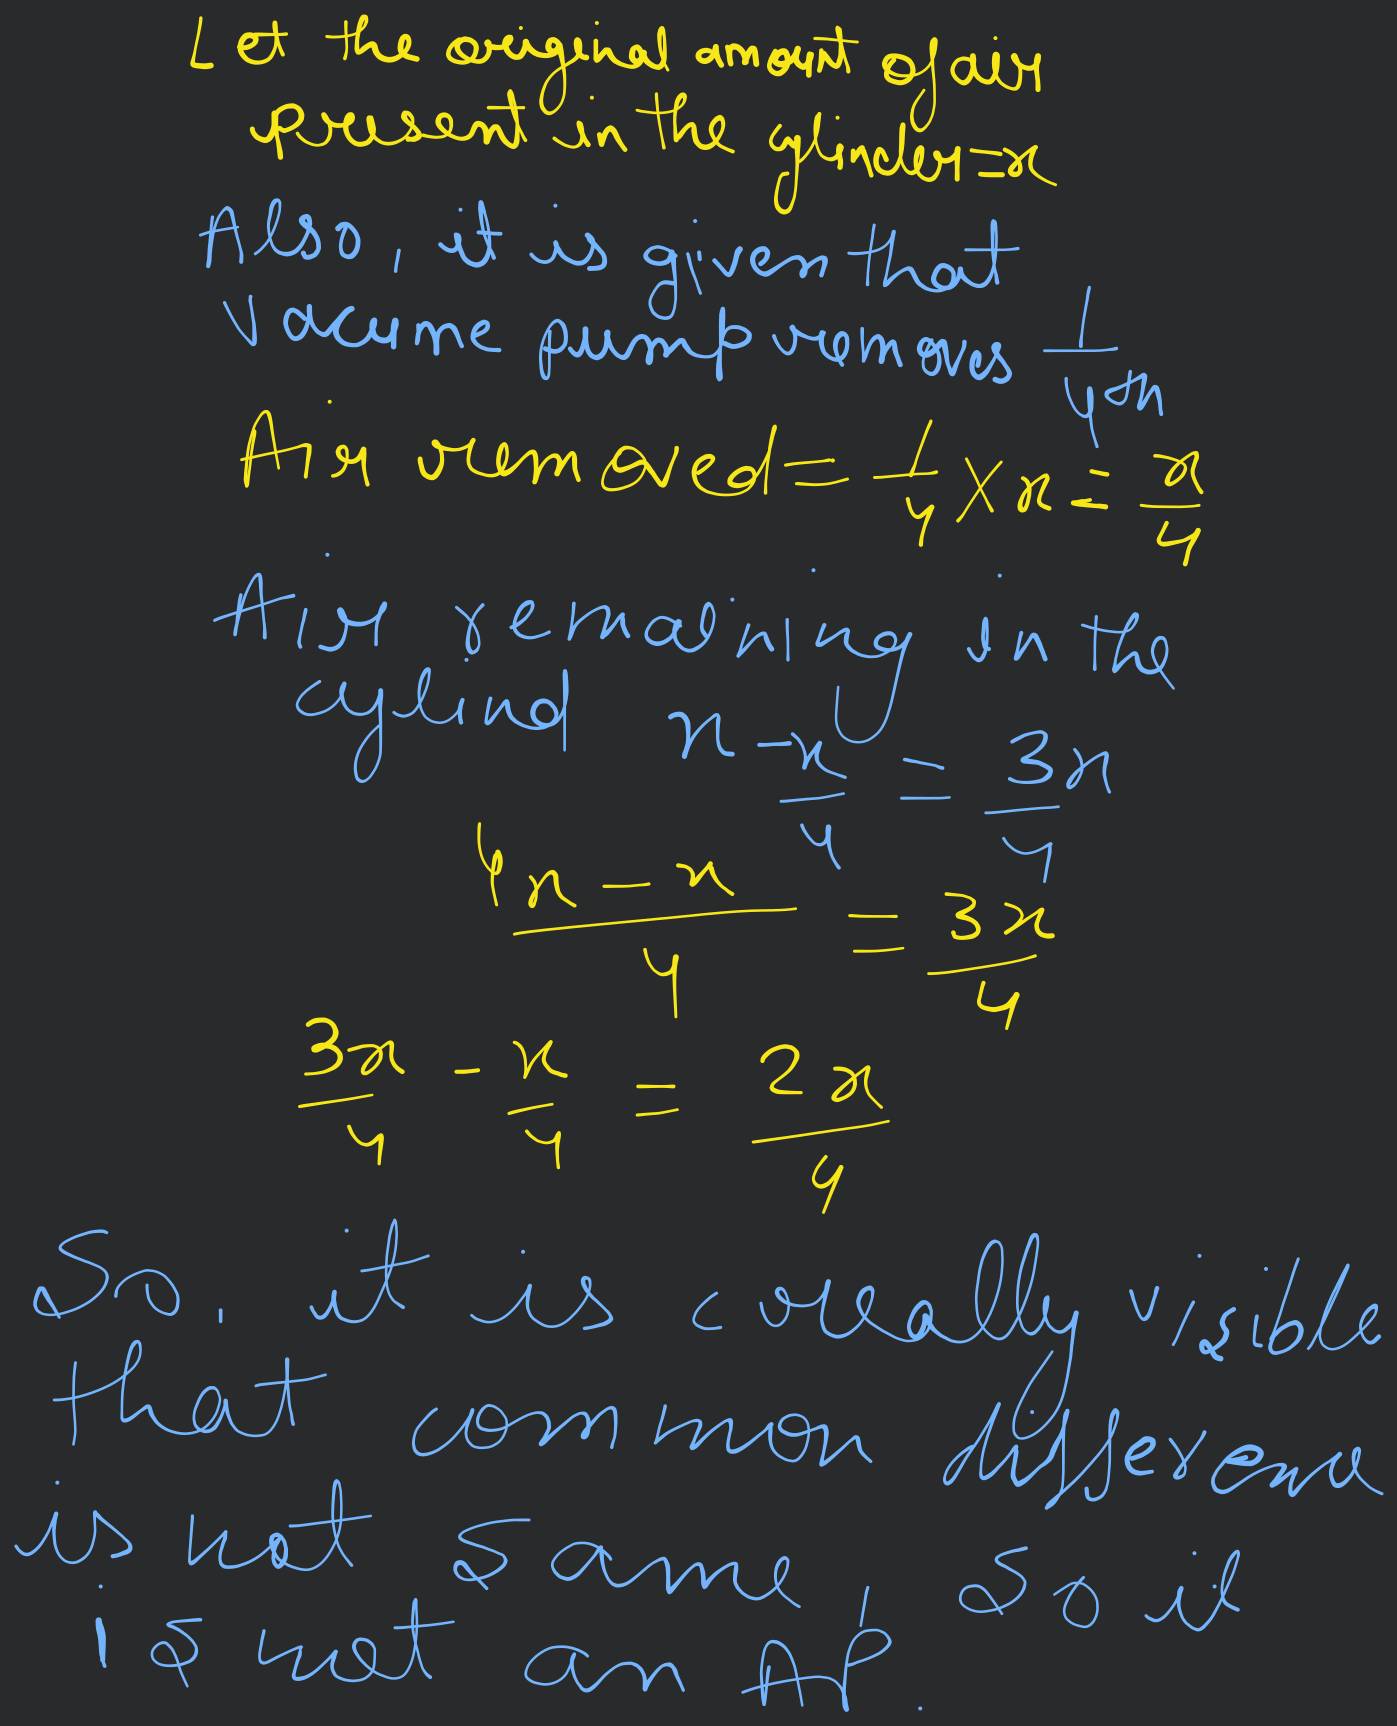 Let the original amount of air
present in the cylinder=x
Also, it is given that
vacume pump removes 1/4th
Air removed = 1/4 × x = x/4
Air remaining in the
cylind x - x/4 = 3x/4
4x - x/4 = 3x/4
3x/4 - x/4 = 2x/4
So, it is creally visible
that common difference
is not same, so it
is not an AP.